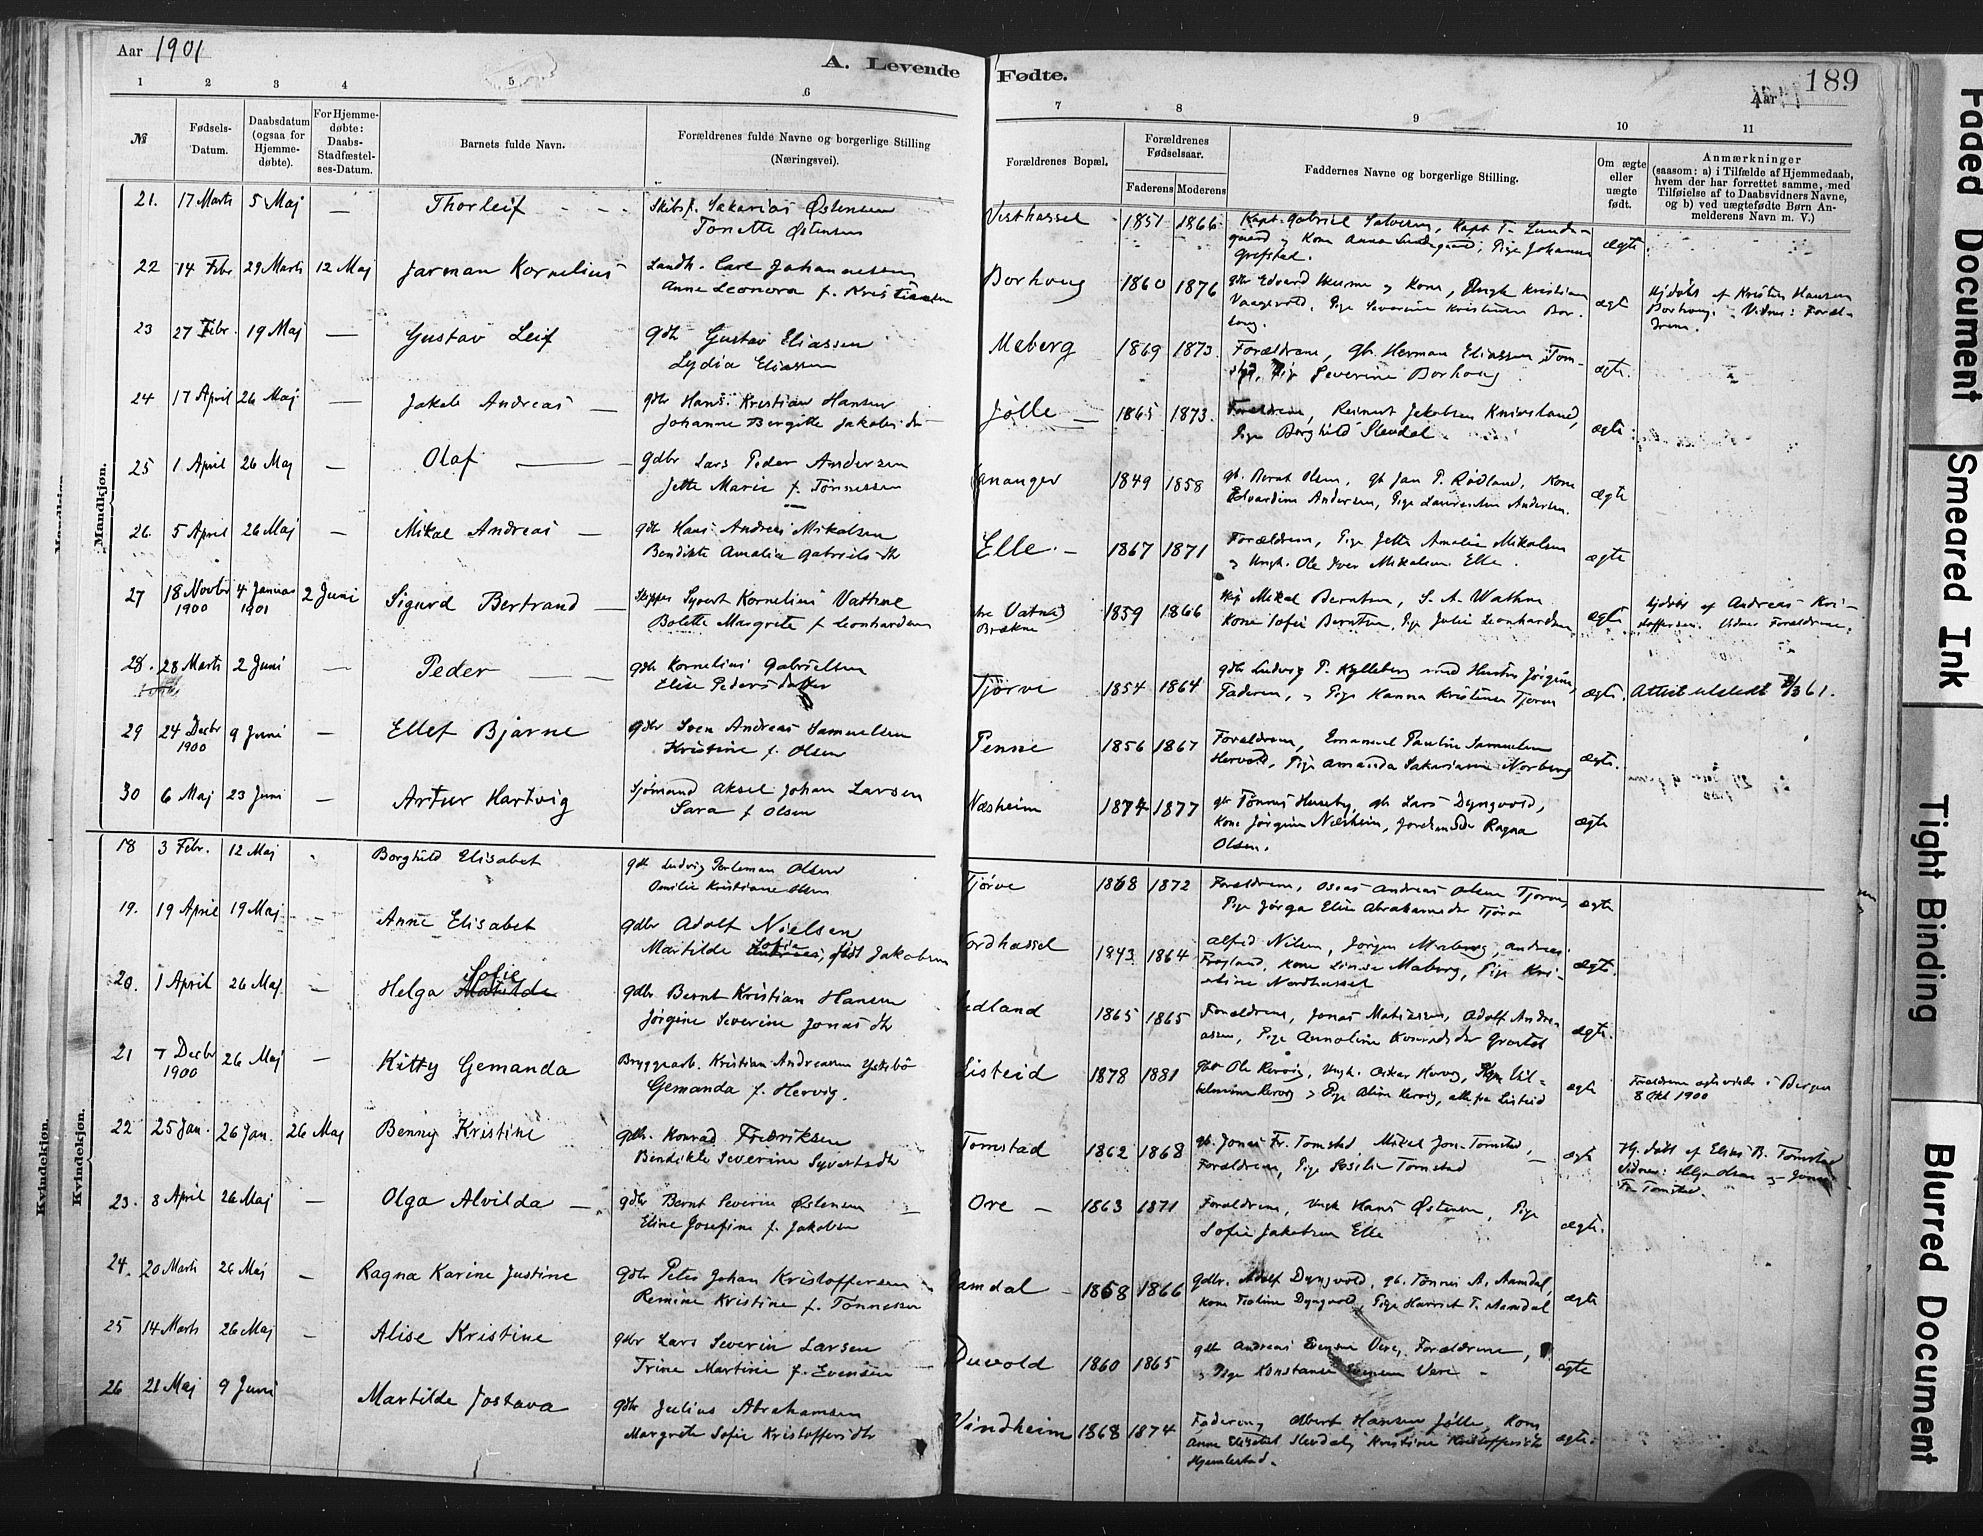 Aar 1901
A. Levende Fødte.
189
Aar
1 2 3 4 5 6 7 8 9 10 11
№
Fødsels-Datum.
Daabsdatum (ogsaa for Hjemme-døbte).
For Hjemme-døbte: Daabs-Stadfæstel-ses-Datum.
Barnets fulde Navn.
Forældrenes fulde Navne og borgerlige Stilling (Næringsvei).
Forældrenes Bopæl.
Forældrenes Fødselsaar.
Faderens Moderens
Faddernes Navne og borgerlige Stilling.
Om ægte eller uægte født.
Anmærkninger (saasom: a) i Tilfælde af Hjemmedaab, hvem der har forrettet samme, med Tilføielse af to Daabsvidners Navne, og b) ved uægtefødte Børn An-melderens Navn m. V.)
Mandkjøn.
21. 17 Marts 5 Maj — Thorleif Skibsf. Sakarias Østensen Vesthassel 1857 1866 Kapt. Gabriel Salvesen, Kapt T. Lunde- ægte
Tonette Østensen gaard og Kone Anna Lundegaard, Pige Johanne
Grefstad.
22 14 Febr 29 Marts 12 Maj Jarman Kornelius Landh. Carl Johannessen Borhoug 1860 1876 Kone, Ungk Kristian ægt Hjdøbt af Kristen Hansen
Anne Leonora f. Kristiansen Pige Severine Kristensen Bor- Borhoug. Vidner: Foræl-
houg. drene.
23 27 Febr. 19 Maj — Gustav Leif gdbr Gustav Eliassen Meberg 1869 1873 Forældrene, gb. Herman Eliassen Tom- ægte.
Lydia Eliassen stad, Pige Severine Borhoug
24 17 April 26 Maj — Jakob Andreas gdbr Hans Kristian Hansen Jølle 1865 1873 Forældrene, Reinert Jakobsen ægte
Johanne Bergitte Jakobsdtr Pige Borghild Slevdal
25 1 April 26 Maj — Olaf gdbr Lars Peder Andersen Ananger 1849 1858 gb. Bernt Olsen, gb Jan P. Rødland, Kone ægte
Jette Marie f. Tønnessen Edvardine Andersen, Pige Andersen.
26. 5 April 26 Maj — Mikal Andreas gdbr Hans Andreas Mikalsen Elle 1867 1871 Forældrene, Pige Jette Amalie Mikalsen ægte
Bendikte Amalia Gabrielsdtr og Ungk. Ole Iver Mikalsen Elle.
27 18 Novbr 4 Januar 2 Juni Sigurd Bertrand Skipper Syvert Kornelius Vattne Vatne 1859 1866 Mikal Berntsen, S. A. Wathne ægte Hjdøbt af Andreas Kri-
1900 1901 Bolette Margrete f Leonhardsen Brekne Kone Sofie Berntsen, Pige Julie Leonhardsen stoffersen. Vidner Forældrene.
28. 28 Marts 2 Juni — Peder gdbr Kornelius Gabrielsen Tjørve 1854 1864 gdbr Ludvig P. Kylleberg med Hustru Jørgine, ægte. Attest utstedt /3 61.
Elise Pedersdatter Faderen, og Pige Hanna Kristensen Tjørve
29 24 Decbr 9 Juni — Ellef Bjarne gdbr Sven Andreas Samuelsen Penne 1856 1867 Forældrene, Emanuel Paulin Samuelsen ægte.
1900 Kristine f. Olsen Hervold, Pige Amanda Sakariassen Norberg
30 6 Maj 23 Juni — Artur Hartvig Sjømand Aksel Johan Larsen Næsheim 1874 1877 gb Tønnes Huseby, gb Lars Dyngvold, ægte
Sara f Olsen Kone Jørgine Næsheim, Ragna
Olsen.
Kvindekjøn.
18 3 Febr. 12 Maj Borghild Elisabet gdb Ludvig Olsen Tjørve 1868 1872 Forældrene, Andreas Olsen Tjørve, ægte
Omilie Kristiane Olsen Pige Jørga Elise Abrahamsdtr Tjørve
19. 19 April 19 Maj — Anne Elisabet gdbr Adolf Nielsen Nordhassel 1843 1864 Alfred Nilsen, Jørgen Meberg, Andreas ægte.
Martilde Sofie født Jakobsen Kone Meberg, Pige Kri-
stine Nordhassel
20. 1 April 26 Maj — Helga Matilde Sofie gdbr Bernt Kristian Hansen Redland 1865 1865 Forældrene, Jonas Matissen, Adolf Andre- ægte.
Jørgine Severine Jonasdtr assen, Pige Annoline Konradsdtr
21 7 Decbr 26 Maj — Kitty Gemanda Bryggearb. Kristian Andreassen Ystebø Listeid 1878 1881 gbr Ole Hervig, Ungk. Oskar Hervig, Pige Vil- ægte Forældrene ægteviede i Bergen
1900 Gemanda f. Hervig. helmine Hervig og Pige Aline Hervig, alle fra Listeid 8 Okt 1900
22 25 Jan. 26 Jan. 26 Maj Benny Kristine gdbr. Konrad Fredriksen Tomstad 1862 1868 gb. Jonas Fr. Tomstad, Mikal Jon. Tomstad, ægt Hj. døbt af Elias B. Tomstad
Bendikte Severine Syvertsdtr Forældrene, Pige Sesilie Tomstad Vidner: Helga Olsen og Jonas
Fr. Tomstad.
23. 8 April 26 Maj — Olga Alvilda gdbr Bernt Severin Østensen Ore 1863 1871 Forældrene, Ungk Hans Østensen, Pige ægte.
Eline Josefine f. Jakobsen Sofie Jakobsen Elle
24. 20 Marts 26 Maj — Ragna Karine Justine gdbr Peter Johan Kristoffersen Aamdal 1868 1866 gdbr. Adolf Dyngvold, gb. Tønnes A. Aamdal, ægte
Remine Kristine f. Tønnessen Kone Dyngvold, Pige Harriet T. Aamdal
25 14 Marts 26 Maj — Alise Kristine gdbr Lars Severin Larsen Duvold 1860 1865 gdb Andreas Evensen Vere, Forældrene, ægte
Trine Martine f. Evensen og Pige Konstanse Evensen Vere
26 21 Maj 9 Juni Martilde Jostava gdbr Julius Abrahamsen Vindheim 1868 1874 Faderen, Albert Hansen Jølle, Kone ægte.
Margrete Sofie Kristoffersdtr Anne Elisabet Slevdal, Kristine Kristoffersdtr
Faded Document
Smeared Ink
Tight Binding
Blurred Document